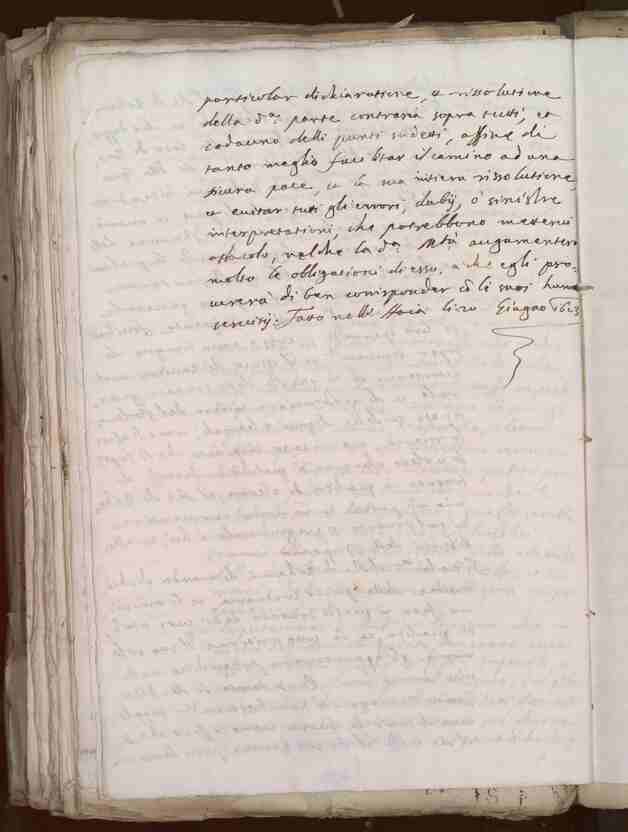 particolar dichiaratione, et rissolutione
della d.ª parte contraria sopra tutti, et
cadauno delli punti sudetti, affine di
tanto meglio facilitar il camino ad una
sicura pace, et la sua intiera rissolutione,
et evitar tuti gli errori, dubij, ò sinistre
interpretationi, che potrebbono mettervi
ostacolo, nelche la d.ª Mtà augamenterà
molto le obligationi di esso, a che egli pro-
curerà di ben corrisponder con li suoi humi
servitij. Fatto nell' Haia li 20 Giugno 1623